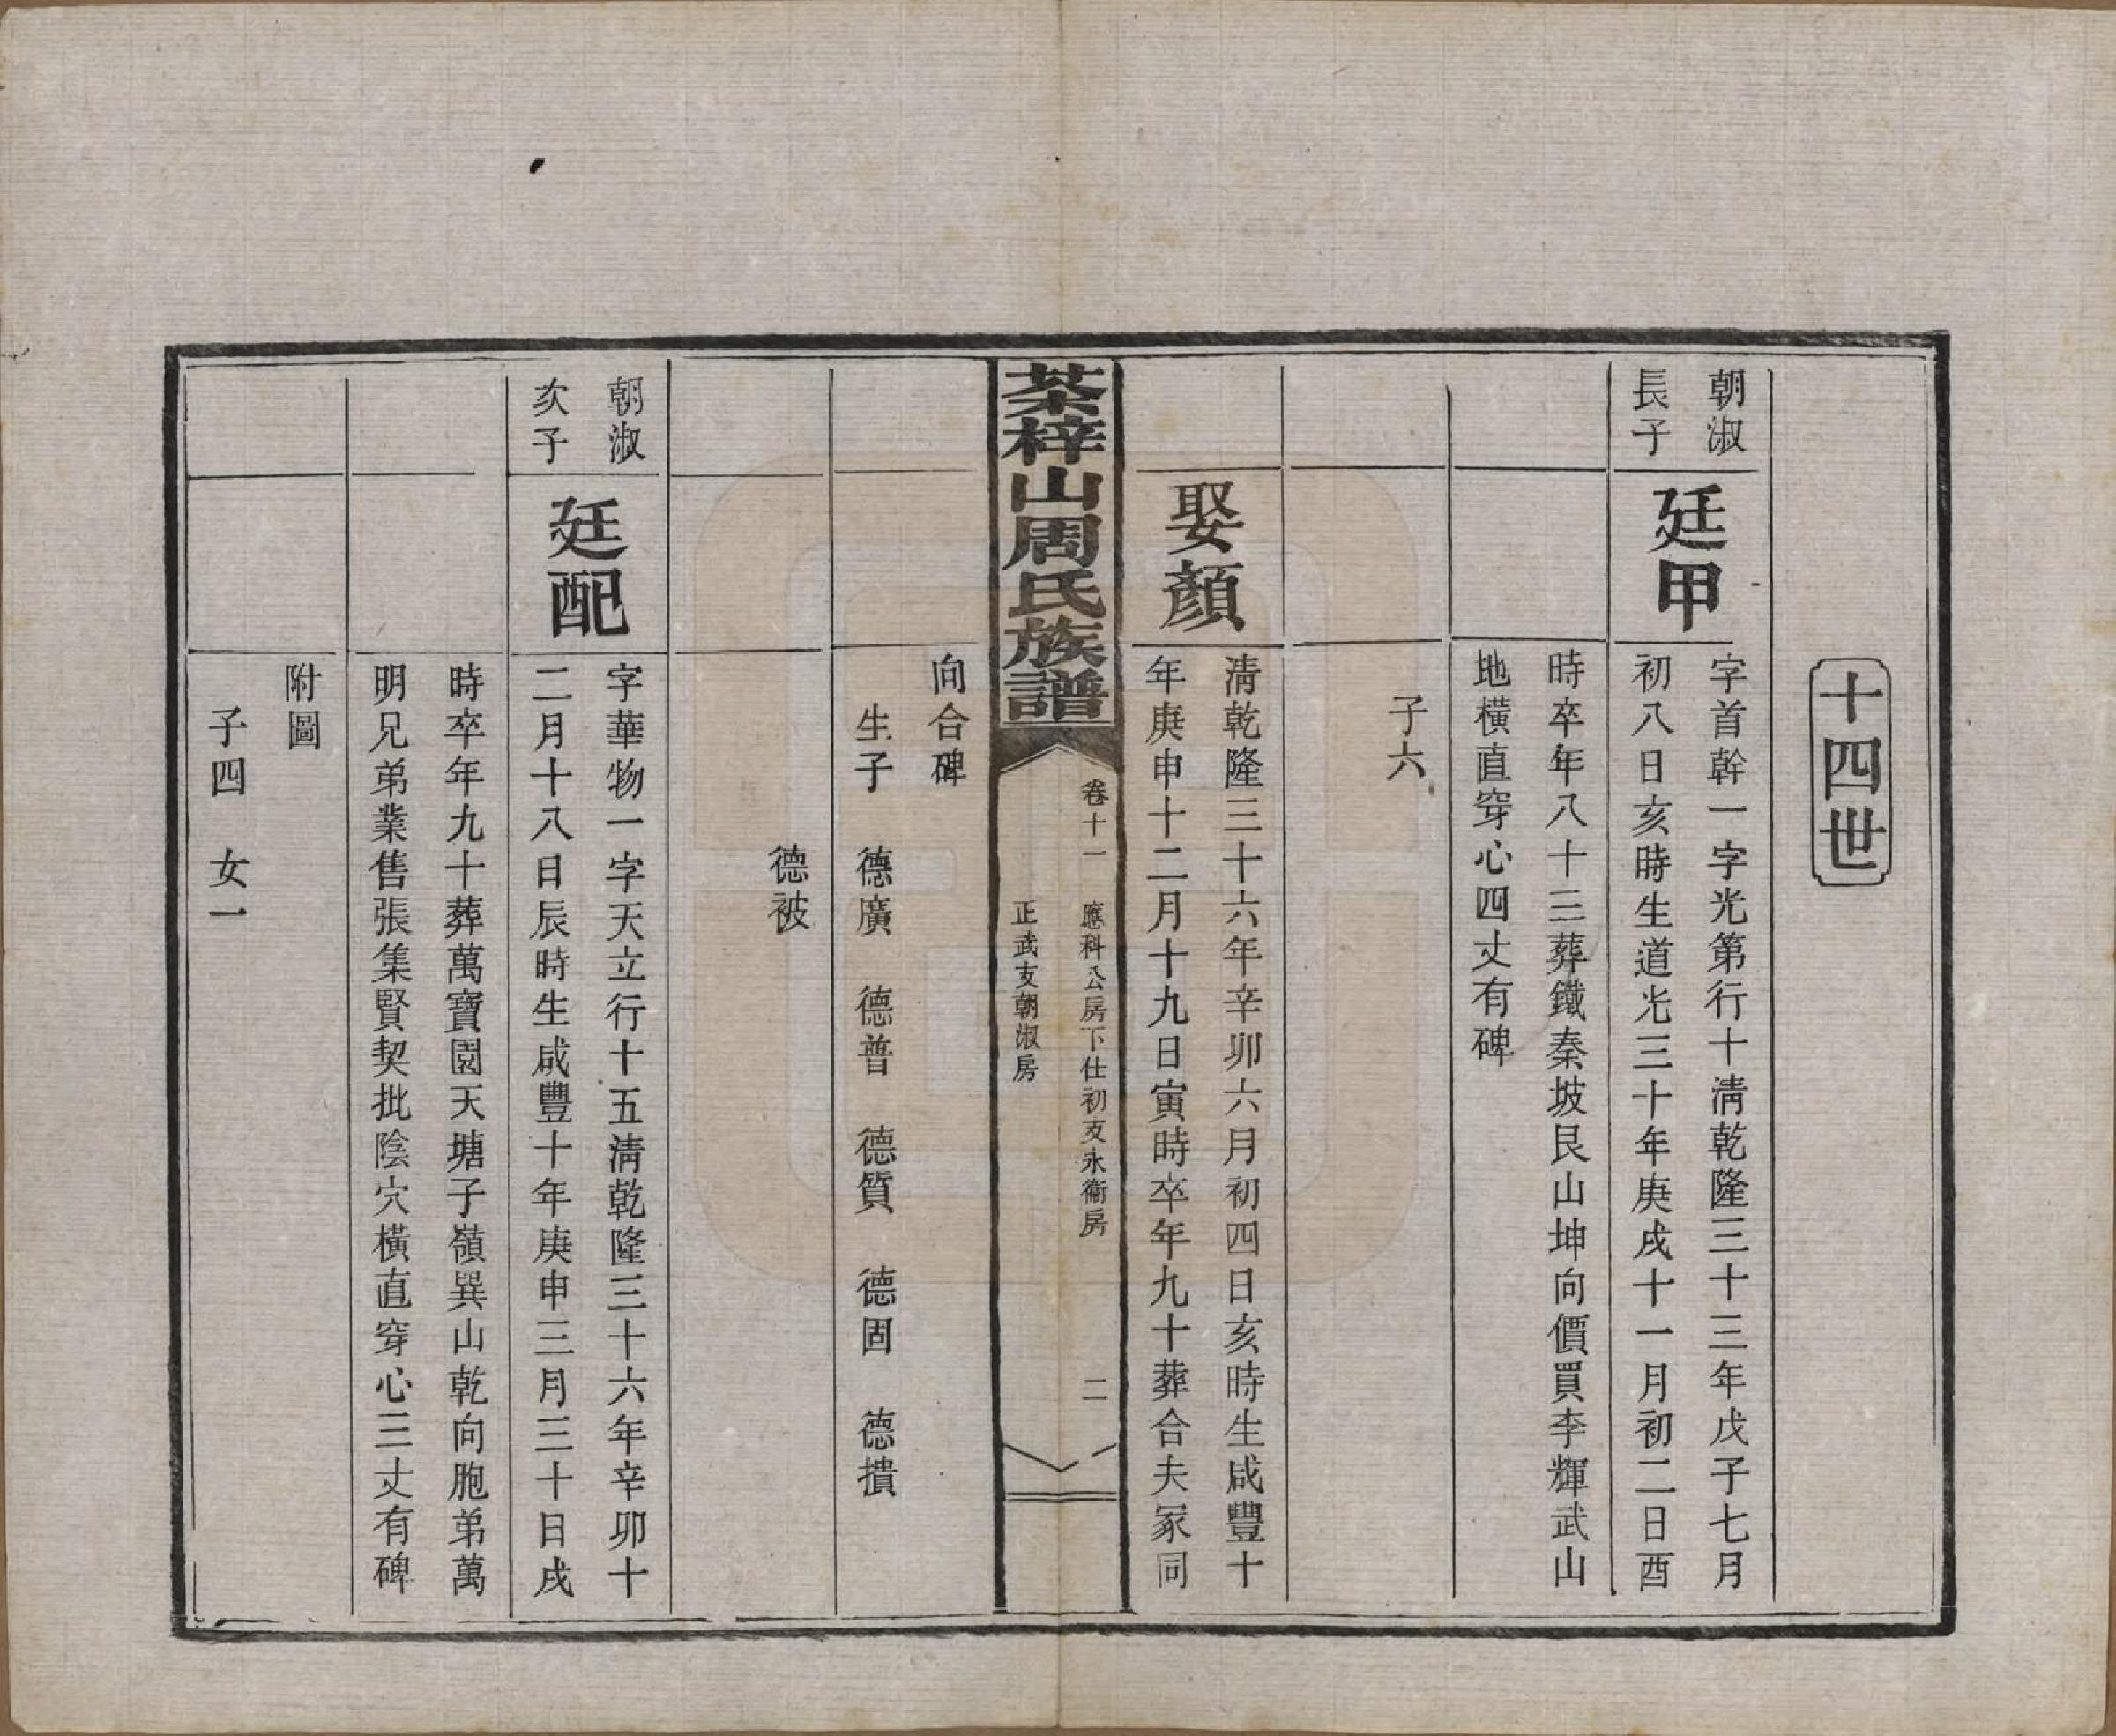 十四世
朝淑
長子
廷甲
字首幹一字光第行十淸乾隆三十三年戊子七月
初八日亥時生道光三十年庚戌十一月初二日酉
時卒年八十三葬鐵秦坡艮山坤向價買李輝武山
地橫直穿心四丈有碑
子六
娶顏
淸乾隆三十六年辛卯六月初四日亥時生咸豐十
年庚申十二月十九日寅時卒年九十葬合夫冢同
茶梓山周氏族譜
卷十一 應科公房下仕初支永衞房 二
正武支朝淑房
向合碑
生子 德廣 德普 德質 德固 德撌
德被
朝淑
次子
廷配
字華物一字天立行十五淸乾隆三十六年辛卯十
二月十八日辰時生咸豐十年庚申三月三十日戌
時卒年九十葬萬寶園天塘子嶺巽山乾向胞弟萬
明兄弟業售張集賢契批陰穴橫直穿心三丈有碑
附圖
子四 女一